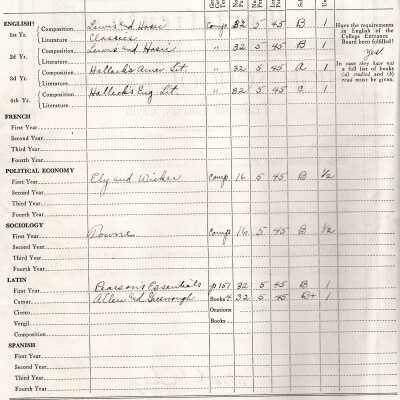 ENGLISH:
1st Yr. Composition Lewis and Hosic Comp. 32 5 45 B 1
Literature Classics
2d Yr. Composition Lewis and Hosic " 32 5 45 B 1
Literature
3d Yr. Composition Halleck's Amer. Lit. " 32 5 45 A 1
Literature
4th Yr. Composition Halleck's Eng. Lit. " 32 5 45 C 1
Literature
Have the requirements
in English of the
College Entrance
Board been fulfilled?
Yes
In case they have not
a full list of books
(a) studied and (b)
read must be given.
FRENCH
First Year
Second Year
Third Year
Fourth Year
POLITICAL ECONOMY
First Year Ely and Wicker Comp 16 5 45 B 1/2
Second Year
Third Year
Fourth Year
SOCIOLOGY
First Year Towne Comp 16 5 45 B 1/2
Second Year
Third Year
Fourth Year
LATIN
First Year Pearson's Essentials p 151 32 5 45 B 1
Caesar Allen and Greenough Books 4 32 5 45 B+ 1
Cicero Orations
Vergil Books
Composition
SPANISH
First Year
Second Year
Third Year
Fourth Year